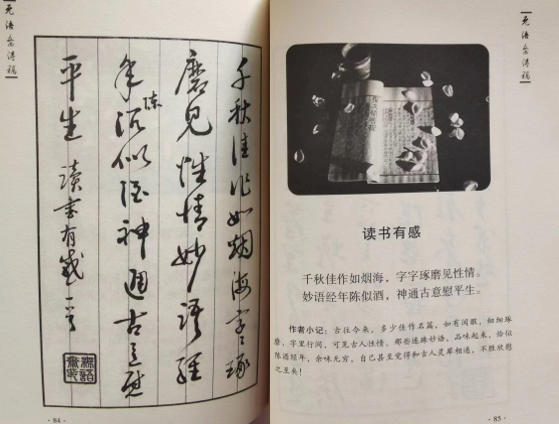 千秋佳作如烟海字字琢
磨見性情妙語經
年沉似酒神通古意慰
陈
平生 讀書有感一首
· 84 ·
读书有感
千秋佳作如烟海，字字琢磨见性情。
妙语经年陈似酒，神通古意慰平生。
作者小记：古往今来，多少佳作名篇，如有闲暇，细细琢
磨，字里行间，可见古人性情。那些连珠妙语，品味起来，恰似
陈酒经年，余味无穷。自己甚至觉得和古人灵犀相通，不胜欣慰
之至矣！
· 85 ·